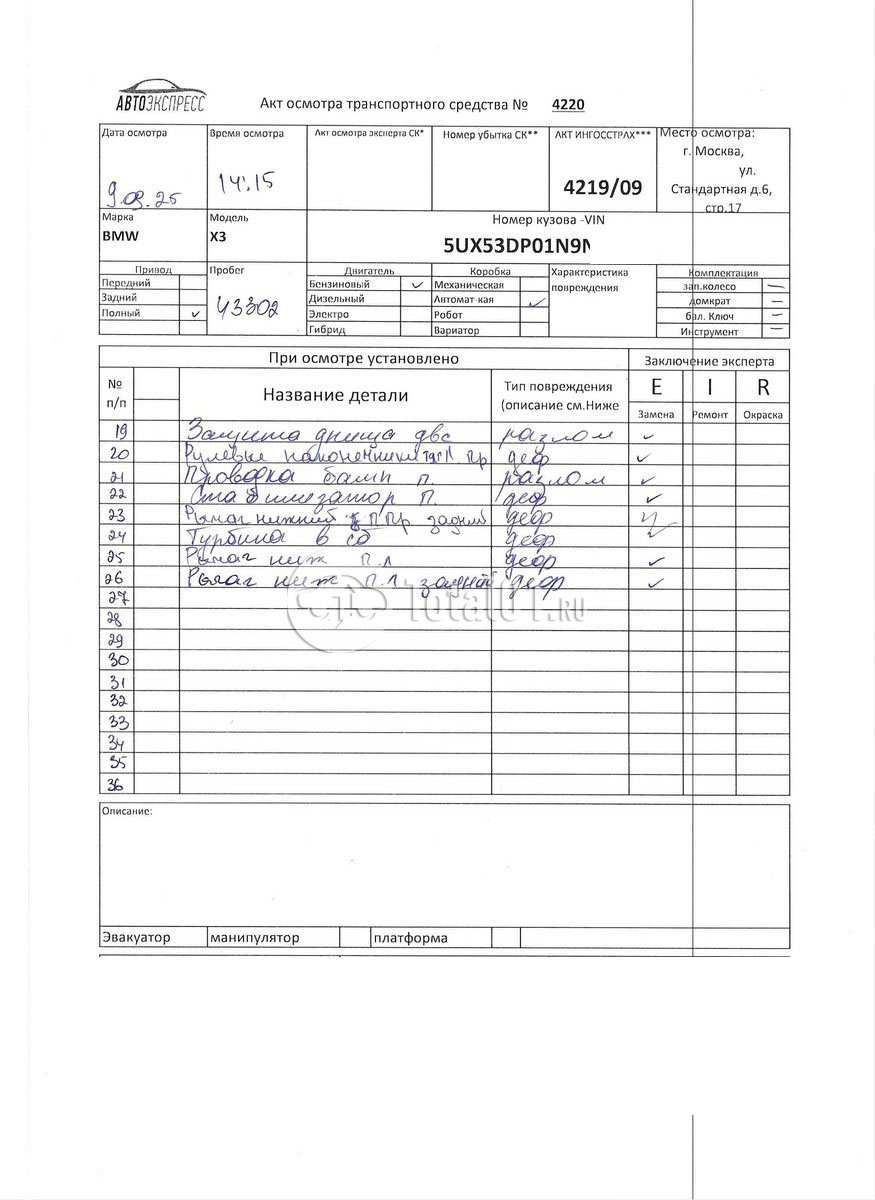 АВТОЭКСПРЕСС
Акт осмотра транспортного средства № 4220
Дата осмотра
9.09.25
Время осмотра
14:15
Акт осмотра эксперта СК*
Номер убытка СК**
АКТ ИНГОССТРАХ***
4219/09
Место осмотра:
г. Москва,
ул.
Стандартная д.6,
стр.17
Марка
BMW
Модель
X3
Номер кузова -VIN
5UX53DP01N9
Привод
Передний
Задний
Полный ✓
Пробег
43302
Двигатель
Бензиновый ✓
Дизельный
Электро
Гибрид
Коробка
Механическая
Автомат-кая ✓
Робот
Вариатор
Характеристика
повреждения
Комплектация
зап.колесо —
домкрат —
бал. Ключ —
Инструмент —
При осмотре установлено
Заключение эксперта
№
п/п
Название детали
Тип повреждения
(описание см.Ниже
E I R
Замена Ремонт Окраска
19 Защита днища двс разлом ✓
20 Рулевые наконечники тяг П Пр деф ✓
21 Проводка бамп п. разлом ✓
22 Стабилизатор П. деф ✓
23 Рычаг нижний П Пр задний деф ✓
24 Турбина в сб деф ✓
25 Рычаг ниж П.Л деф ✓
26 Рычаг ниж П.Л задний деф ✓
27
28
29
30
31
32
33
34
35
36
Total01.RU
Описание:
Эвакуатор манипулятор платформа